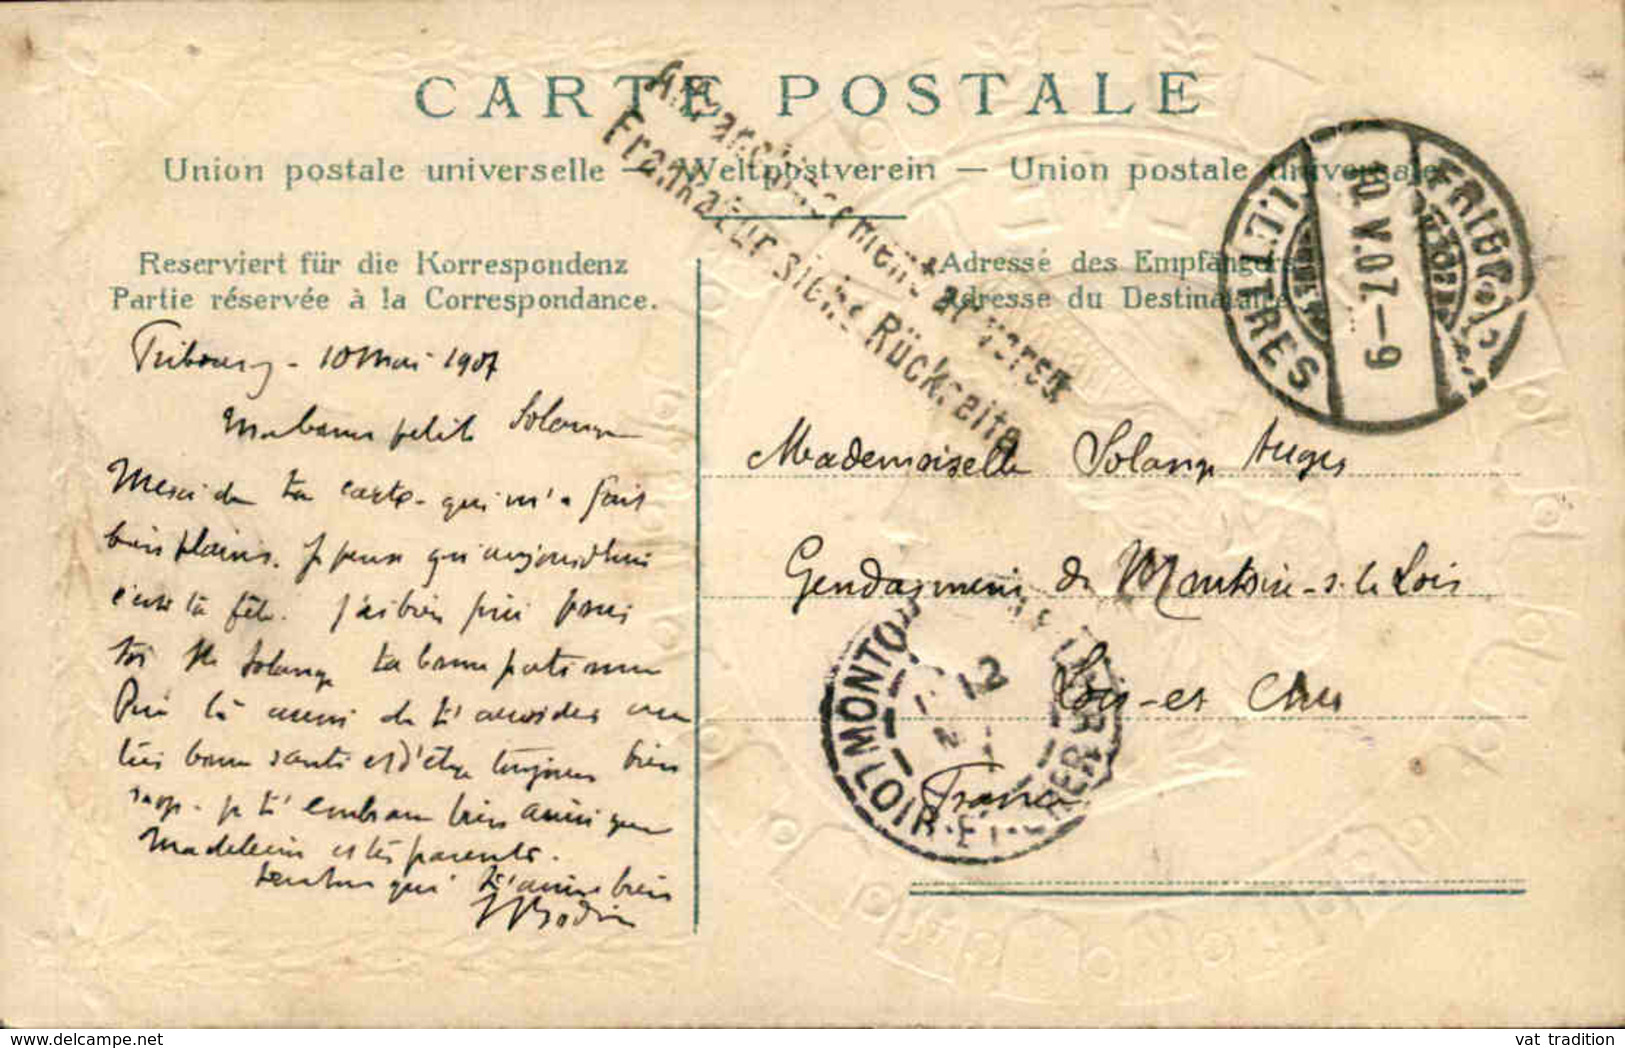 CARTE POSTALE
Union postale universelle — Weltpostverein — Union postale universale
Affranchissement au verso
Frankatur siehe Rückseite
Reserviert für die Korrespondenz
Partie réservée à la Correspondance.
Adresse des Empfängers
Adresse du Destinataire
FRIBOURG
10.V.07.—9
LETTRES
Fribourg - 10 Mai 1907
Ma bonne petite Solange
Merci de ta carte qui m'a fait
bien plaisir. Je pense qu'aujourd'hui
c'est ta fête. J'ai bien prié pour
toi Ste Solange ta bonne patronne
Prie là aussi de t'accorder une
très bonne santé et d'être toujours bien
sage. Je t'embrasse bien ainsi que
Madeleine et tes parents.
qui t'aime bien
Bodin
Mademoiselle Solange Auger
Gendarmerie de Montoire-s-le Loir
Loir-et Cher
France
MONTOIRE
12
LOIR-ET-CHER
vat tradition